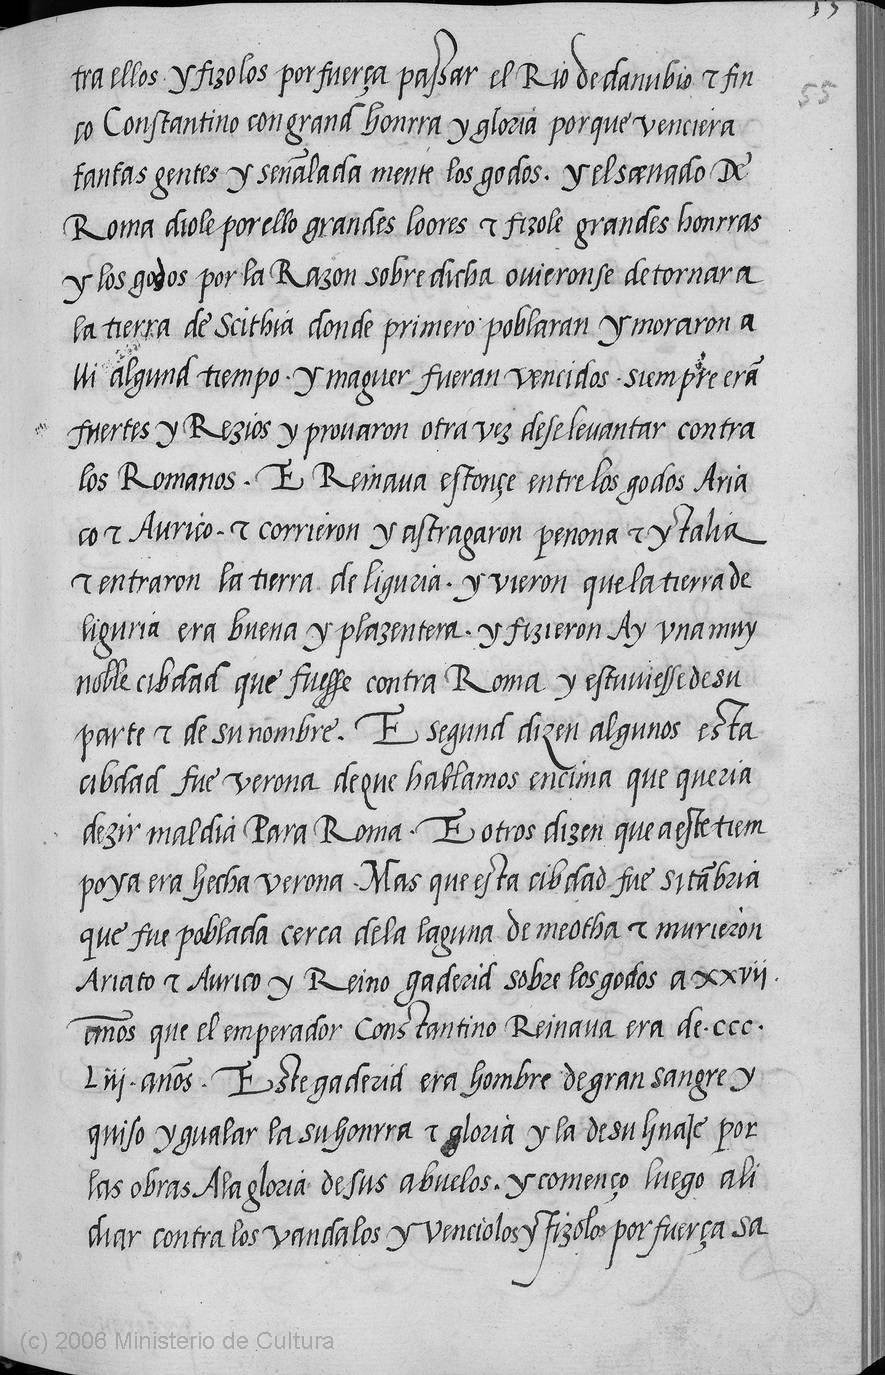 55
tra ellos. y fizolos por fuerça passar el Rio de danubio τ fin
co Constantino con grand honrra y gloria porque venciera
tantas gentes y señalada mente los godos. y el sænado De
Roma diole por ello grandes loores τ fizole grandes honrras
y los godos por la Razon sobre dicha ouieronse de tornar a
la tierra de Scithia donde primero poblaran y moraron a
lli algund tiempo. y maguer fueran vencidos. siempre erã
fuertes y Rezios y prouaron otra vez de se levantar contra
los Romanos. E Reinaua estonçe entre los godos Aria
co τ Aurico. τ corrieron y astragaron penona τ ytalia
τ entraron la tierra de liguria. y vieron que la tierra de
liguria era buena y plazentera. y fizieron Ay vna muy
noble cibdad que fuesse contra Roma y estuviesse de su
parte τ de su nombre. E segund dizen algunos esta
cibdad fue verona de que hablamos encima que queria
dezir mal dia Para Roma. E otros dizen que a este tiem
po ya era hecha verona. Mas que esta cibdad fue sitãbria
que fue poblada cerca de la laguna de meotha τ murieron
Ariato τ Aurico y Reino gaderid sobre los godos a xxvij.
años que el emperador Constantino Reinaua era de. ccc.
Liij. anõs. Este gaderid era hombre de gran sangre y
quiso ygualar la su honrra τ gloria y la de su linaje por
las obras A la gloria de sus abuelos. y començo luego a li
diar contra los vandalos y venciolos y fizolos por fuerça sa
(c) 2006 Ministerio de Cultura